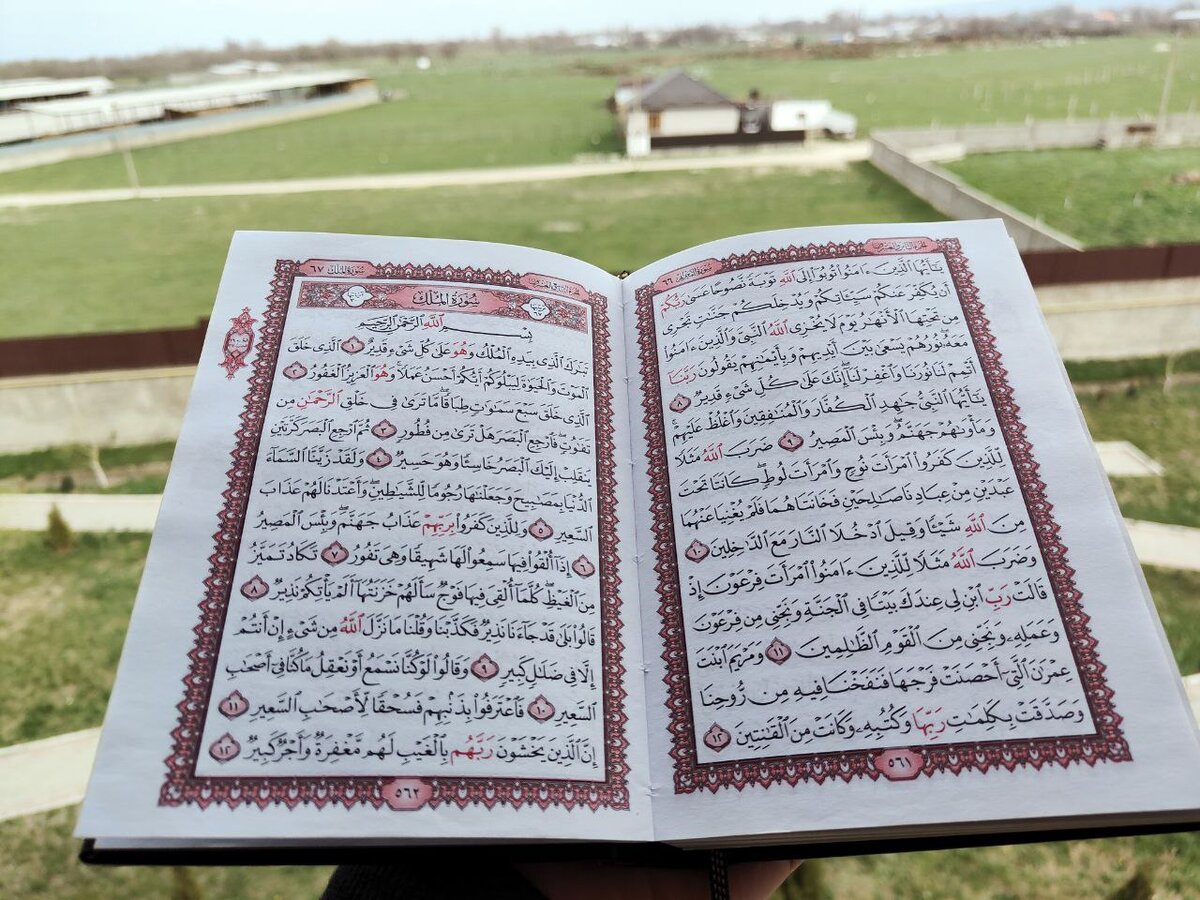 سورة التحريم ٦٦
يَٰٓأَيُّهَا ٱلَّذِينَ ءَامَنُوا۟ تُوبُوٓا۟ إِلَى ٱللَّهِ تَوْبَةً نَّصُوحًا عَسَىٰ رَبُّكُمْ
أَن يُكَفِّرَ عَنكُمْ سَيِّـَٔاتِكُمْ وَيُدْخِلَكُمْ جَنَّٰتٍ تَجْرِى
مِن تَحْتِهَا ٱلْأَنْهَٰرُ يَوْمَ لَا يُخْزِى ٱللَّهُ ٱلنَّبِىَّ وَٱلَّذِينَ ءَامَنُوا۟
مَعَهُۥ نُورُهُمْ يَسْعَىٰ بَيْنَ أَيْدِيهِمْ وَبِأَيْمَٰنِهِمْ يَقُولُونَ رَبَّنَآ
أَتْمِمْ لَنَا نُورَنَا وَٱغْفِرْ لَنَآ إِنَّكَ عَلَىٰ كُلِّ شَىْءٍ قَدِيرٌ ٨
يَٰٓأَيُّهَا ٱلنَّبِىُّ جَٰهِدِ ٱلْكُفَّارَ وَٱلْمُنَٰفِقِينَ وَٱغْلُظْ عَلَيْهِمْ
وَمَأْوَىٰهُمْ جَهَنَّمُ وَبِئْسَ ٱلْمَصِيرُ ٩ ضَرَبَ ٱللَّهُ مَثَلًا
لِّلَّذِينَ كَفَرُوا۟ ٱمْرَأَتَ نُوحٍ وَٱمْرَأَتَ لُوطٍ كَانَتَا تَحْتَ
عَبْدَيْنِ مِنْ عِبَادِنَا صَٰلِحَيْنِ فَخَانَتَاهُمَا فَلَمْ يُغْنِيَا عَنْهُمَا
مِنَ ٱللَّهِ شَيْـًٔا وَقِيلَ ٱدْخُلَا ٱلنَّارَ مَعَ ٱلدَّٰخِلِينَ ١٠
وَضَرَبَ ٱللَّهُ مَثَلًا لِّلَّذِينَ ءَامَنُوا۟ ٱمْرَأَتَ فِرْعَوْنَ إِذْ
قَالَتْ رَبِّ ٱبْنِ لِى عِندَكَ بَيْتًا فِى ٱلْجَنَّةِ وَنَجِّنِى مِن فِرْعَوْنَ
وَعَمَلِهِۦ وَنَجِّنِى مِنَ ٱلْقَوْمِ ٱلظَّٰلِمِينَ ١١ وَمَرْيَمَ ٱبْنَتَ
عِمْرَٰنَ ٱلَّتِىٓ أَحْصَنَتْ فَرْجَهَا فَنَفَخْنَا فِيهِ مِن رُّوحِنَا
وَصَدَّقَتْ بِكَلِمَٰتِ رَبِّهَا وَكُتُبِهِۦ وَكَانَتْ مِنَ ٱلْقَٰنِتِينَ ١٢
٥٦١
سورة الملك ٦٧
سُورَةُ الْمُلْكِ
بِسْمِ ٱللَّهِ ٱلرَّحْمَٰنِ ٱلرَّحِيمِ
تَبَٰرَكَ ٱلَّذِى بِيَدِهِ ٱلْمُلْكُ وَهُوَ عَلَىٰ كُلِّ شَىْءٍ قَدِيرٌ ١ ٱلَّذِى خَلَقَ
ٱلْمَوْتَ وَٱلْحَيَوٰةَ لِيَبْلُوَكُمْ أَيُّكُمْ أَحْسَنُ عَمَلًا وَهُوَ ٱلْعَزِيزُ ٱلْغَفُورُ ٢
ٱلَّذِى خَلَقَ سَبْعَ سَمَٰوَٰتٍ طِبَاقًا مَّا تَرَىٰ فِى خَلْقِ ٱلرَّحْمَٰنِ مِن
تَفَٰوُتٍ فَٱرْجِعِ ٱلْبَصَرَ هَلْ تَرَىٰ مِن فُطُورٍ ٣ ثُمَّ ٱرْجِعِ ٱلْبَصَرَ كَرَّتَيْنِ
يَنقَلِبْ إِلَيْكَ ٱلْبَصَرُ خَاسِئًا وَهُوَ حَسِيرٌ ٤ وَلَقَدْ زَيَّنَّا ٱلسَّمَآءَ
ٱلدُّنْيَا بِمَصَٰبِيحَ وَجَعَلْنَٰهَا رُجُومًا لِّلشَّيَٰطِينِ وَأَعْتَدْنَا لَهُمْ عَذَابَ
ٱلسَّعِيرِ ٥ وَلِلَّذِينَ كَفَرُوا۟ بِرَبِّهِمْ عَذَابُ جَهَنَّمَ وَبِئْسَ ٱلْمَصِيرُ
٦ إِذَآ أُلْقُوا۟ فِيهَا سَمِعُوا۟ لَهَا شَهِيقًا وَهِىَ تَفُورُ ٧ تَكَادُ تَمَيَّزُ
مِنَ ٱلْغَيْظِ كُلَّمَآ أُلْقِىَ فِيهَا فَوْجٌ سَأَلَهُمْ خَزَنَتُهَآ أَلَمْ يَأْتِكُمْ نَذِيرٌ ٨
قَالُوا۟ بَلَىٰ قَدْ جَآءَنَا نَذِيرٌ فَكَذَّبْنَا وَقُلْنَا مَا نَزَّلَ ٱللَّهُ مِن شَىْءٍ إِنْ أَنتُمْ
إِلَّا فِى ضَلَٰلٍ كَبِيرٍ ٩ وَقَالُوا۟ لَوْ كُنَّا نَسْمَعُ أَوْ نَعْقِلُ مَا كُنَّا فِىٓ أَصْحَٰبِ
ٱلسَّعِيرِ ١٠ فَٱعْتَرَفُوا۟ بِذَنۢبِهِمْ فَسُحْقًا لِّأَصْحَٰبِ ٱلسَّعِيرِ ١١
إِنَّ ٱلَّذِينَ يَخْشَوْنَ رَبَّهُم بِٱلْغَيْبِ لَهُم مَّغْفِرَةٌ وَأَجْرٌ كَبِيرٌ ١٢
٥٦٢